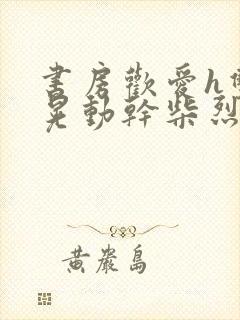 書房歡愛h
晃動幹柴烈
黃巖島